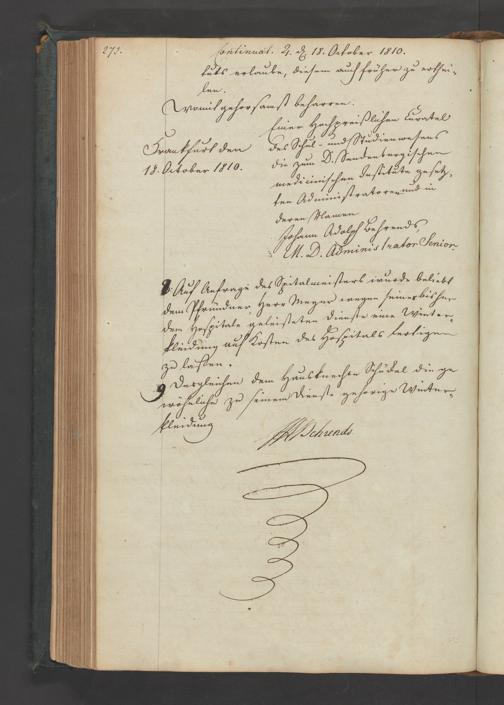 273.
Continuat. 2. d. 18. October 1810.
tuts erlaube, diesem auch früher zu erthei-
len.
Womit gehorsamst beharren.
Einer Hochpreißlichen Curatel
des Schul- und Studienwesens
die zum D. Senckenbergischen
medicinischen Institute gesetz-
ten Administratoren und in
deren Namen
Frankfurt den
18. October 1810.
Johann Adolph Behrends,
M. D. Administrator Senior
8 Auf Anfrage des Spitalmeisters wurde beliebt
dem Pfründner, Herr Meyer wegen seiner bisher
dem Hospitale geleisteten Dienste eine Winter-
kleidung auf Kosten des Hospitals fertigen
zu lassen.
9 Desgleichen dem Hausknechte Schükel die ge
wöhnliche zu seinem Dienste gehörige Winter-
kleidung
JABehrends